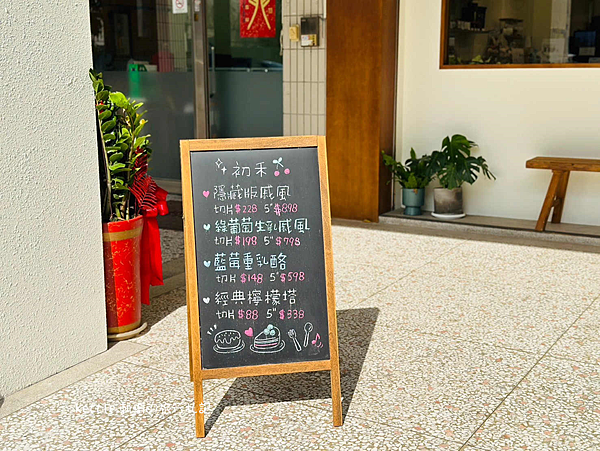 初禾
隱藏版戚風
切片$228 5"$898
綠葡萄生乳戚風
切片$198 5"$798
藍莓重乳酪
切片$148 5"$598
經典檸檬塔
切片$88 5"$338